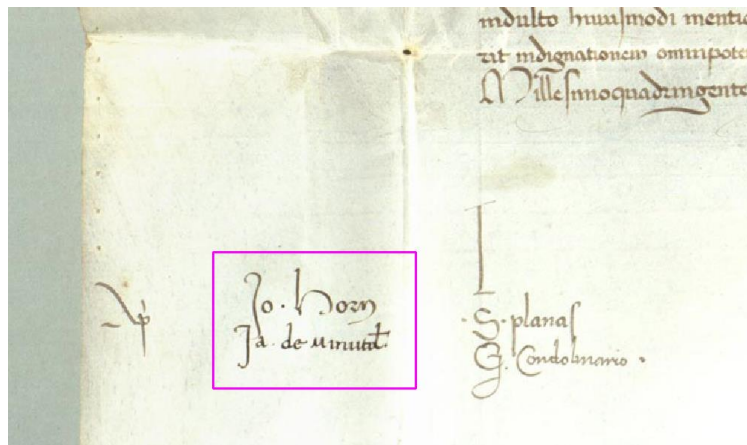 indulto huiusmodi mentio
rit indignationem omnipote
Millesimoquadringente
Jo. Horn
Ja. de Minutil
S. planas
G. Condolmario.